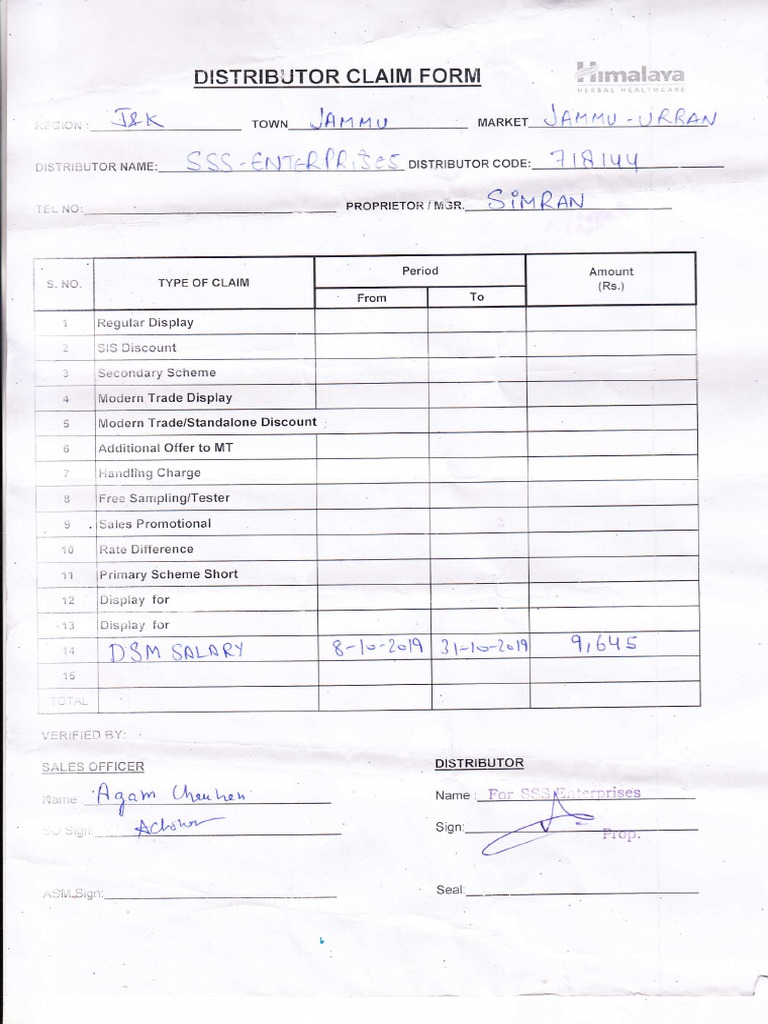 DISTRIBUTOR CLAIM FORM
Himalaya
HERBAL HEALTHCARE
REGION : J&K TOWN JAMMU MARKET JAMMU-URBAN
DISTRIBUTOR NAME: SSS-ENTERPRISES DISTRIBUTOR CODE: 718144
TEL NO: PROPRIETOR / MGR. SIMRAN
S. NO. TYPE OF CLAIM Period Amount (Rs.)
From To
1 Regular Display
2 SIS Discount
3 Secondary Scheme
4 Modern Trade Display
5 Modern Trade/Standalone Discount
6 Additional Offer to MT
7 Handling Charge
8 Free Sampling/Tester
9 Sales Promotional
10 Rate Difference
11 Primary Scheme Short
12 Display for
13 Display for
14 DSM SALARY 8-10-2019 31-10-2019 9,645
15
TOTAL
VERIFIED BY:
SALES OFFICER DISTRIBUTOR
Name : Agam Name : For SSS Enterprises
SO Sign: Sign: Prop.
ASM Sign: Seal: